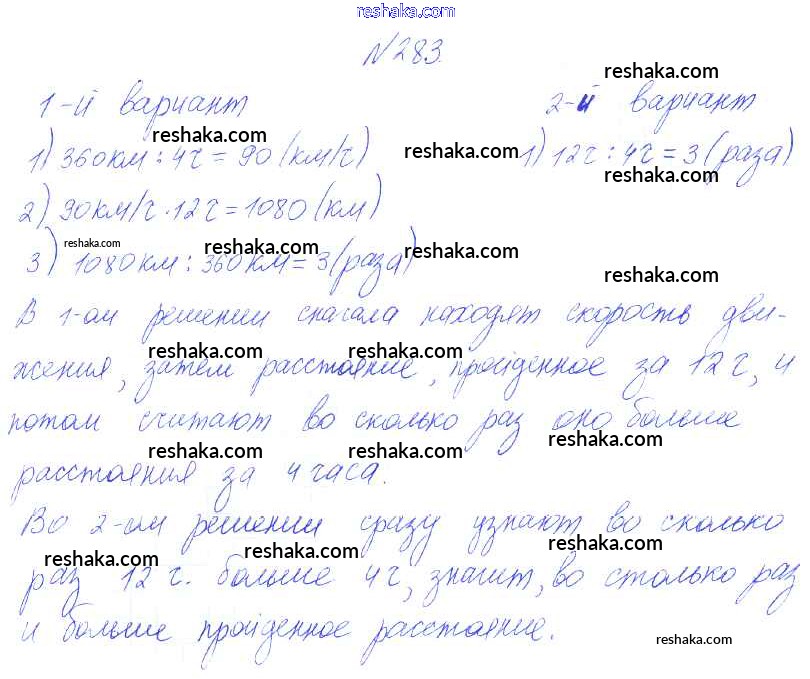 reshaka.com
№283.
reshaka.com
1-й вариант 2-й вариант
reshaka.com reshaka.com
1) 360км : 4ч = 90 (км/ч) reshaka.com 1) 12ч : 4ч = 3 (раза)
reshaka.com
2) 90км/ч · 12ч = 1080 (км)
reshaka.com reshaka.com reshaka.com
3) 1080км : 360км = 3 (раза)
reshaka.com
В 1-ом решении сначала находят скорость дви-
reshaka.com reshaka.com reshaka.com
жения, затем расстояние, пройденное за 12ч, и
потом считают во сколько раз оно больше
reshaka.com reshaka.com reshaka.com
расстояния за 4 часа.
Во 2-ом решении сразу узнают во сколько
reshaka.com reshaka.com reshaka.com
раз 12 ч. больше 4ч, значит, во столько раз
и больше пройденное расстояние.
reshaka.com